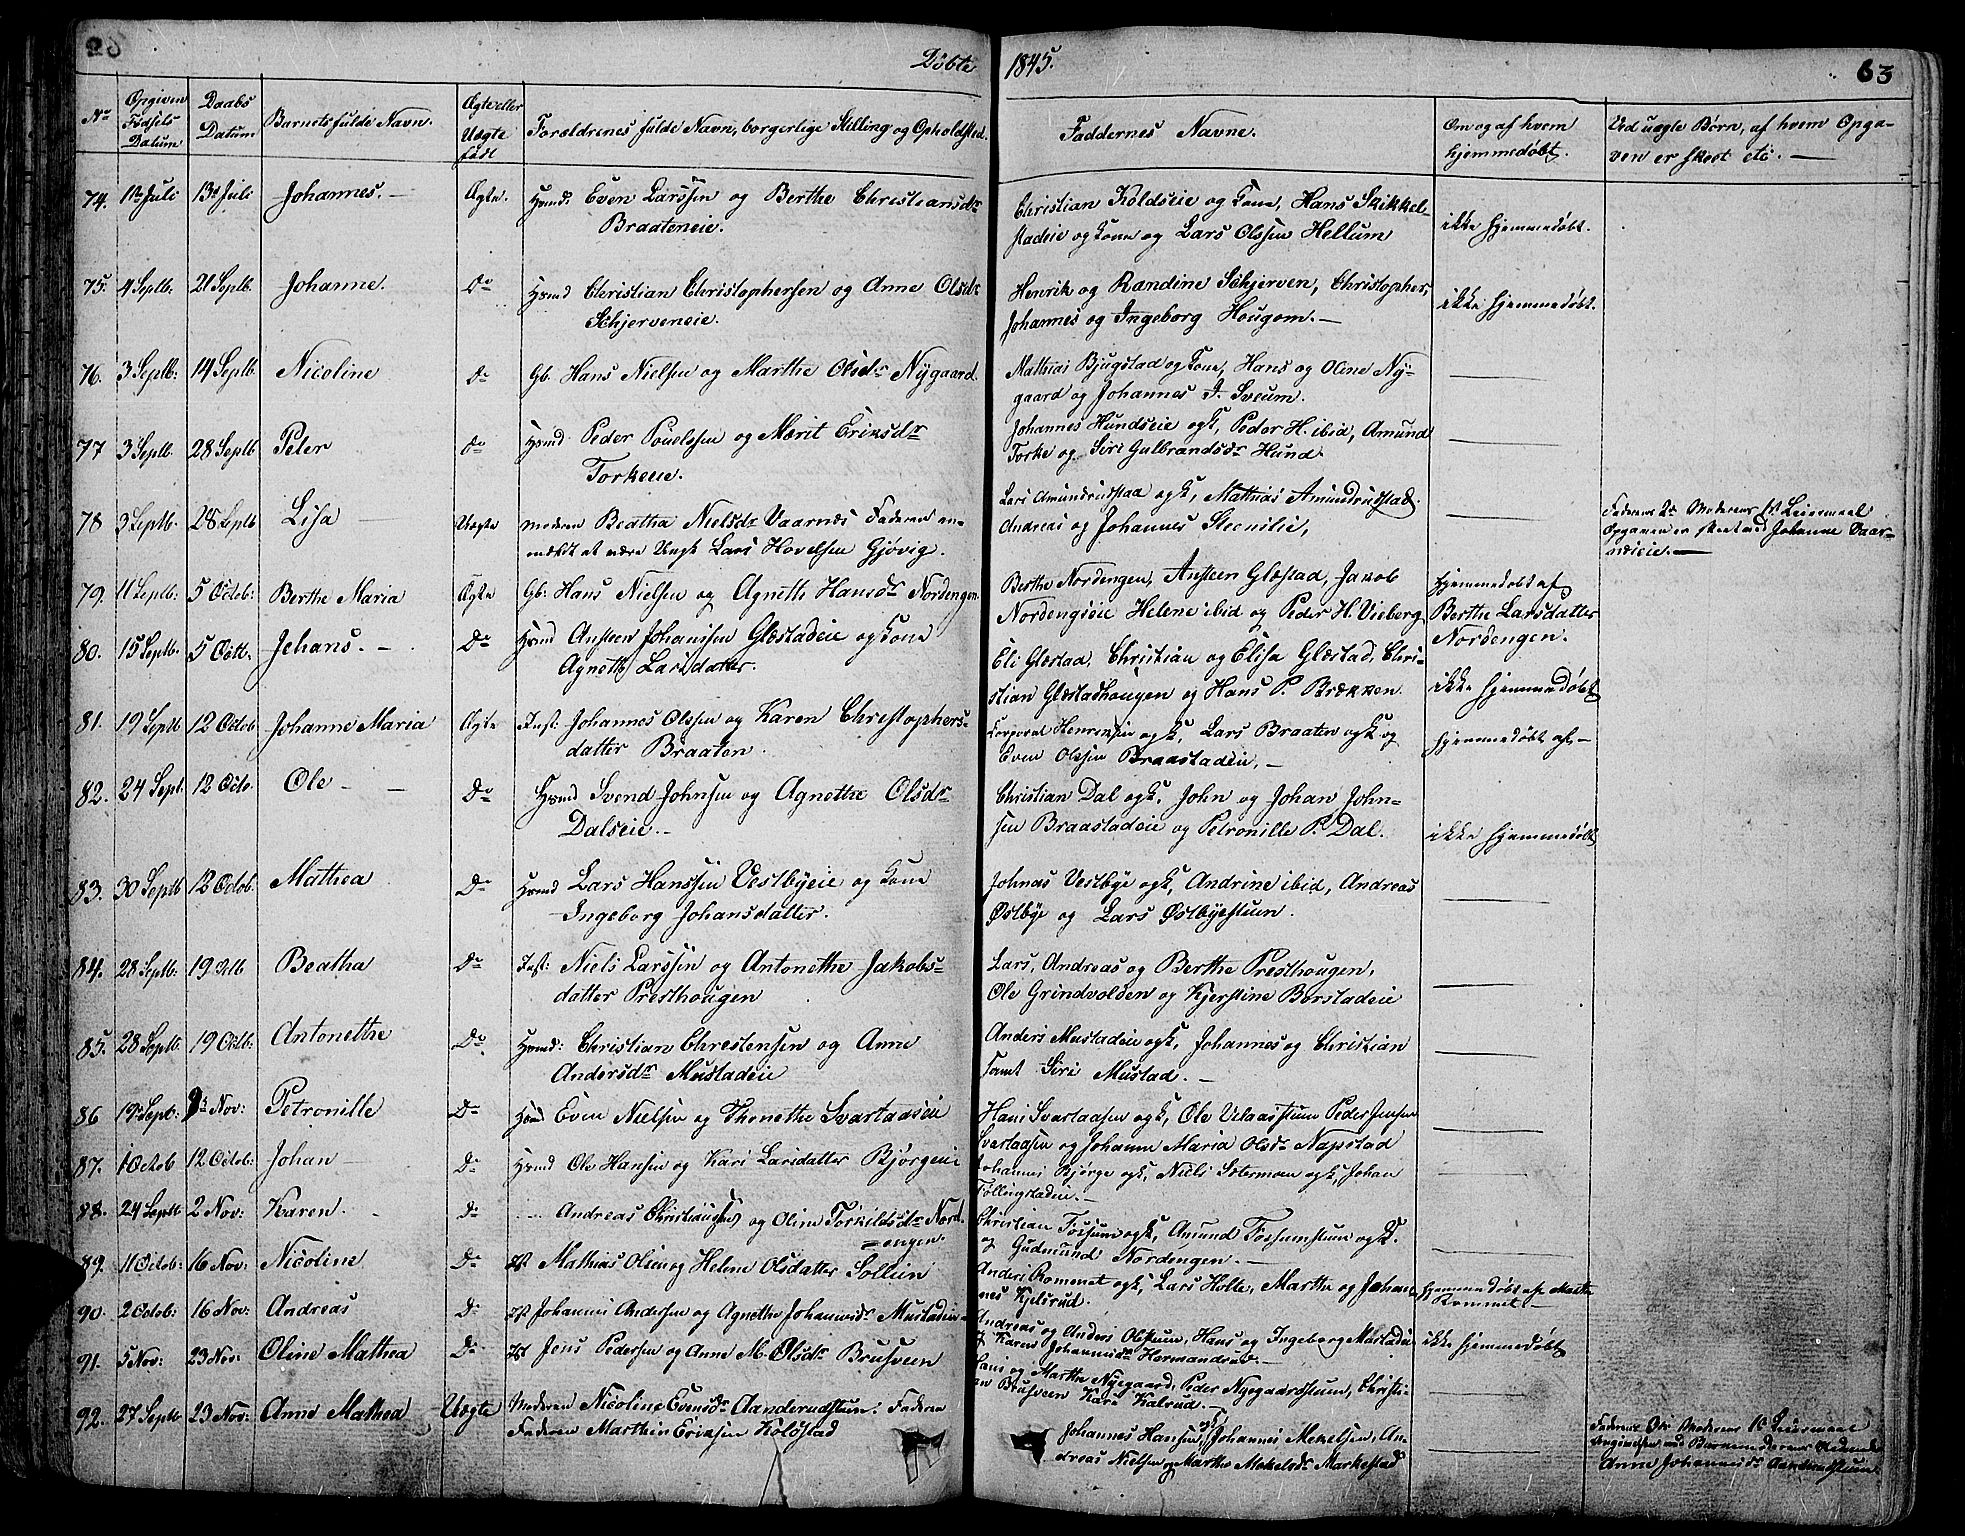 Döbte 1845. 63
No Opgiven Fødsels Datum Daabs Datum Barnets fulde Navn. Ægte eller Uægte født Forældrenes fulde Navn, borgerlige Stilling og Opholdsted. Faddernes Navne. Om og af hvem hjemmedøbt. Ved uægte Børn, af hvem Opgaven er skeet etc. —
74. 1ste Juli 13de Juli Johannes. — Ægte. Hsmd: Even Larssen og Berthe Christiansdr
Braateneie.
Christian Koldseie og Kone, Hans Skikkel-
stadeie og Kone og Lars Olssen Hellum
ikke hjemmedøbt.
75. 4 Septb: 21 Septb. Johanne. Do Hsmd Christian Christophersen og Anne Olsdr
Schjerveneie.
Henrik og Randine Schjerven, Christopher,
Johannes og Ingeborg Hougom. —
ikke hjemmedøbt.
76. 3 Septb: 14 Septb. Nicoline Do Gb. Hans Nielsen og Marthe Olsdr Nygaard.
Mathias Bjugstad og Kone, Hans og Oline Ny-
gaard og Johannes J. Sveum.
77 3 Septb. 28 Septb Peter Do Hsmd: Peder Pouelssen og Marit Eriksdr
Torkeeie.
Johannes Hundseie og K, Peder H. ibid, Amund
Torke og Siri Gulbrandsdr Hund
78 3 Septb. 28 Septb Lisa — Uægte moderen Beatha Nielsdr Vaarnæs Faderen an-
meldt at være Ungk Lars Hovelsen Gjövig.
Lars Amundrudstad og K, Mathias Amundrudstad.
Andreas og Johannes Steenseie,
Faderens 2d Moderens 1st Leiermaal
Opgaven er skeet ved Johanne Vaar-
næseie. —
79. 11 Septb: 5 Octob: Berthe Maria Ægte Gb: Hans Nielsen og Agnethe Hansdr Nordengen.
Berthe Nordengen, Ansteen Glæstad, Jakob
Nordengseie Helene ibid og Peder H. Vieberg
Hjemmedøbt af
Berthe Larsdatter
Nordengen.
80. 15 Septb. 5 Octb. Jehans. — Do Hsmd Ansteen Johanssen Glæstadeie og Kone
Agnethe Larsdatter.
Eli Glæstad, Christian og Elisa Glæstad, Chri-
stian Glæstadhougen og Hans P. Brækken.
ikke hjemmedøbt
81. 19 Septb 12 Octob Johanne Maria Ægte Inst: Johannes Olssen og Karen Christophers-
datter Braaten.
Corporal Henriksen og K, Lars Braaten og K og
Even Olssen Braastadeie, —
hjemmedøbt af, —
82. 24 Sept. 12 Octo. Ole — Do Hsmd Svend Johnsen og Agnethe Olsdr
Dalseie. —
Christian Dal og K, John og Johan John-
sen Braastadeie og Petronille P. Dal.
ikke hjemmedøbt
83. 30 Septb 12 Octob. Mathea Do Hsmd Lars Hanssen Vestbyeie og Kone
Ingeborg Johansdatter.
Johnas Vestbye og K, Andrine ibid, Andreas
Østbye og Lars Østbyestuen.
84. 28 Septb: 19 Octb Beatha Do Inst: Niels Larssen og Antonethe Jakobs-
datter Presthougen
Lars, Andreas og Berthe Presthougen,
Ole Grindvolden og Kjerstine Berstadeie
85. 28 Septb: 19 Octb. Antonethe Do Hsmd: Christian Christensen og Anne
Andersdr Mustadeie
Anders Mustadeie og K, Johannes og Christian
samt Siri Mustad. —
86 19 Septb: 2 Nov: Petronille Do Hsmd Even Nielsen og Thonethe Svartaaseie
Hans Svartaasen og K, Ole Ulaasstuen Peder Jensen
Svartaasen og Johanne Maria Olsdr Napstad
87. 1 Octob 12 Octob: Johan — Do Hsmd Ole Hansen og Kari Larsdatter Bjorgeeie
Johannes Bjørge og K, Niels og K, Johan
Föllingstadeie. —
88. 24 Septb 2 Nov: Karen. Do Andreas Christiansen og Oline Torkildsdr Nord-
engen.
Christian Fossum og K, Amund Fossumstuen og K.
og Gudmund Nordengen. —
89. 11 Octob: 16 Nov: Nicoline Do Mathias Olsen og Helene Olsdatter Sollien
Anders Rommet og K, Lars Holte, Marthe og Johan-
nes Kjelsrud.
Hjemmedøbt af Marthe
Rommet —
90. 2 Octob: 16 Nov: Andreas Do Johannes Andersen og Agnethe Johannesdr Mustadeie —
Andreas og Anders Olestuen, Hans og Ingeborg Mustadeie
og Karen Johannesdr Hermandrud. —
ikke hjemmedøbt
91. 5 Nov: 23 Nov: Oline Mathea Do Jens Pedersen og Anne M. Olsdr Brusveen
Hans og Marthe Nyegaard, Peder Nyegaardstuen, Christi-
an Brusveen Kari Kalrud. —
92. 27 Septb 23 Nov: Anne Mathea Uægte Moderen Nicoline Evensdr Aanderudstuen: Faderen
Faderen Marthin Eriksen Kolöstad
Johannes Hansen og K, Johannes Mekelsen, An-
dreas Nielsen og Marthe Mekelsdr Markestad
Faderens Moderens Leiermaal
Angivelsen ved Barnemoderens
Anne Johannesdr Aanderudstuen.